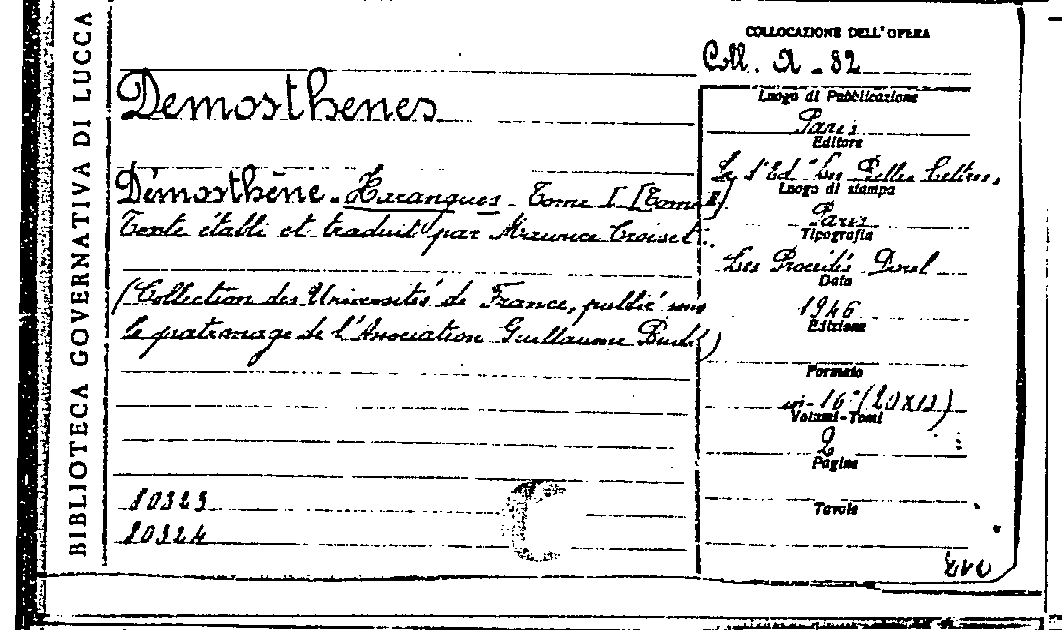 BIBLIOTECA GOVERNATIVA DI LUCCA
Demosthenes
Démosthène - Harangues - Tome I [Tome II]
Texte établi et traduit par Maurice Croiset..
(Collection des Universités de France, publié sous
le patronage de l'Association Guillaume Budé)
10323
10324
COLLOCAZIONE DELL'OPERA
Coll. A - 82
Luogo di Pubblicazione
Paris
Editore
"Les Belles Lettres"
Luogo di stampa
Paris
Tipografia
Les Procédés Dorel
Data
1946
Edizione
Formato
in-16° (20x13)
Volumi-Tomi
2
Pagine
Tavole